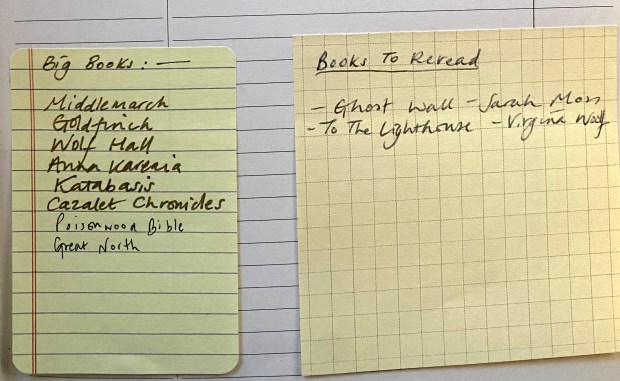 Big Books : —
Middlemarch
Goldfinch
Wolf Hall
Anna Karenia
Katabasis
Cazalet Chronicles
Poisonwood Bible
Great North
Books To Reread
- Ghost Wall - Sarah Moss
- To The Lighthouse - Virginia Woolf